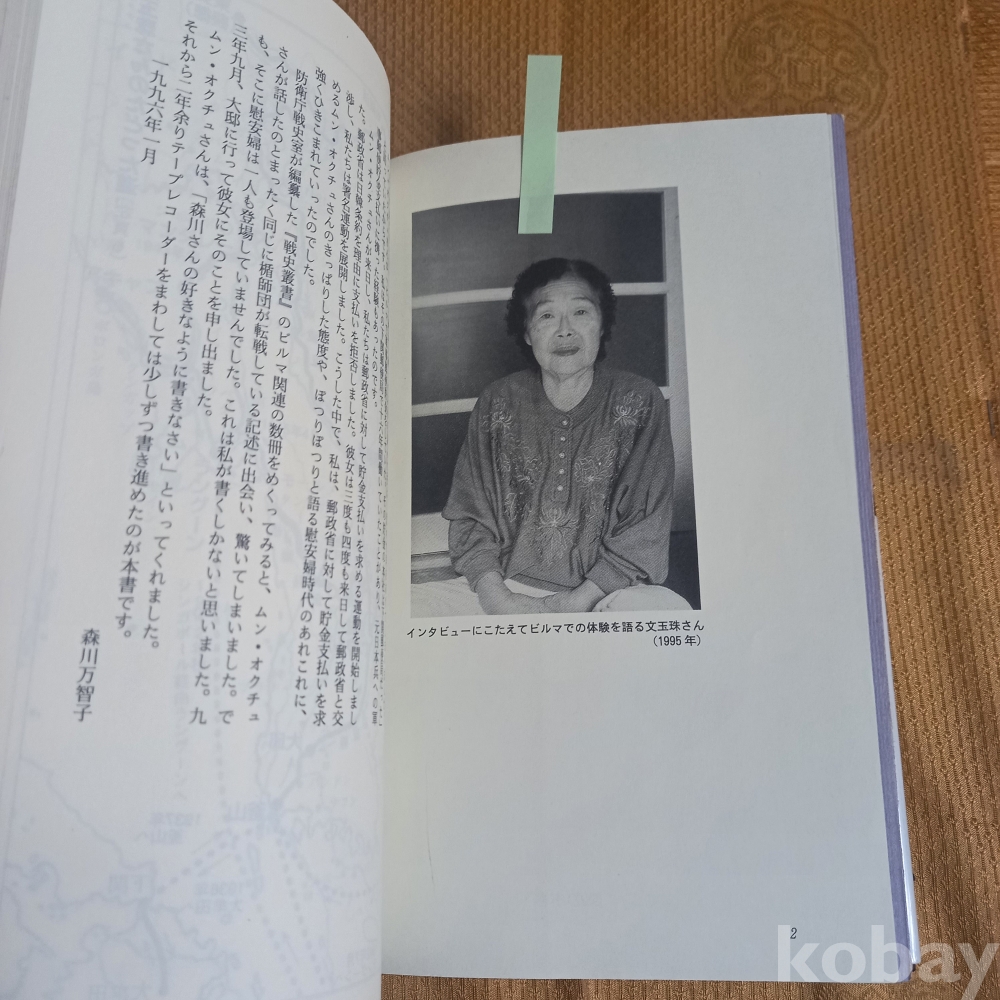 十六年間働いていたことがあり、元日本兵への軍
金支払いに携った経験もあったのです。
ムン・オクチュさんが来日し、私たちは郵政省に対して貯金支払いを求める運動を開始しまし
た。郵政省は日韓条約を理由に支払いを拒否しました。彼女は三度も四度も来日して郵政省と交
渉し、私たちは署名運動を展開しました。こうした中で、私は、郵政省に対して貯金支払いを求
めるムン・オクチュさんのきっぱりした態度や、ぽつりぽつりと語る慰安婦時代のあれこれに、
強くひきこまれていったのでした。
防衛庁戦史室が編纂した『戦史叢書』のビルマ関連の数冊をめくってみると、ムン・オクチュ
さんが話したのとまったく同じに楯師団が転戦している記述に出会い、驚いてしまいました。で
も、そこに慰安婦は一人も登場していませんでした。これは私が書くしかないと思いました。九
三年九月、大邸に行って彼女にそのことを申し出ました。
ムン・オクチュさんは、「森川さんの好きなように書きなさい」といってくれました。
それから二年余りテープレコーダーをまわしては少しずつ書き進めたのが本書です。
一九九六年一月
森川万智子
インタビューにこたえてビルマでの体験を語る文玉珠さん
(1995年)
2
kobay